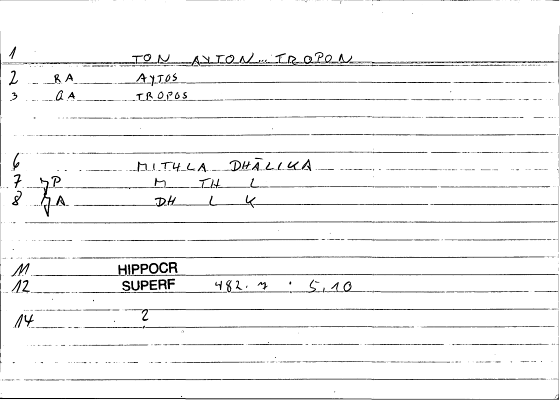 1 TON AYTON... TROPON
2 RA AYTOS
3 QA TROPOS
6 MITHLA DHĀLIKA
7 P M TH L
8 A DH L K
11 HIPPOCR
12 SUPERF 482. 7 : 5,10
14 2